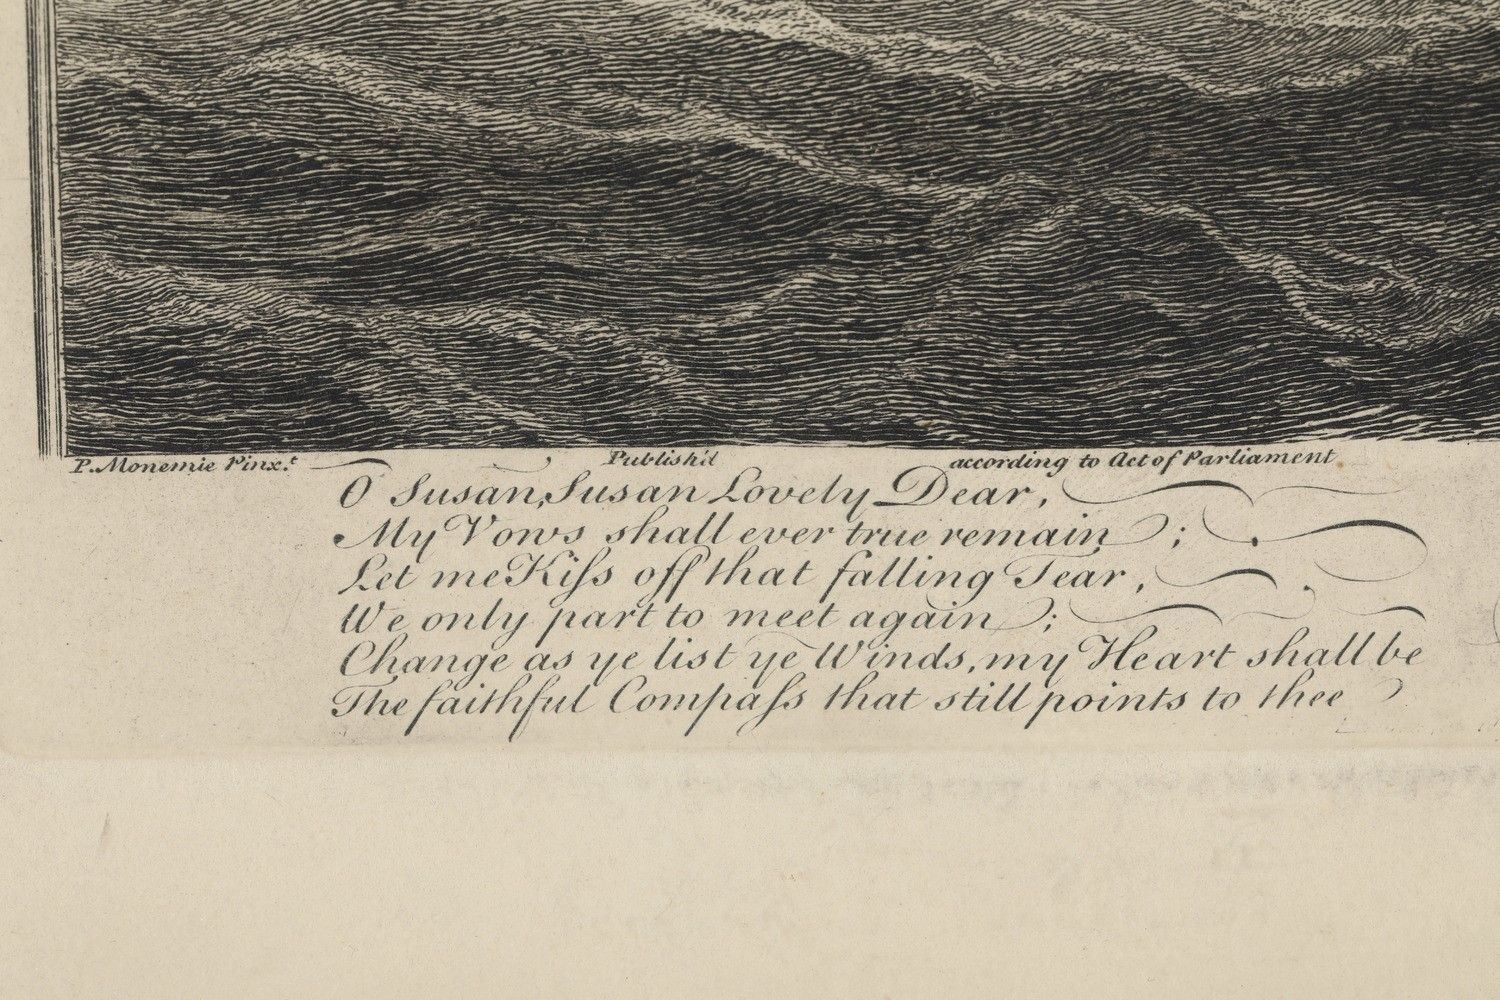 P. Monemie Pinx.t Publish'd according to Act of Parliament
O Susan, Susan Lovely Dear,
My Vows shall ever true remain;
Let me Kiſs off that falling Tear,
We only part to meet again;
Change as ye list ye Winds, my Heart shall be
The faithful Compaſs that still points to thee